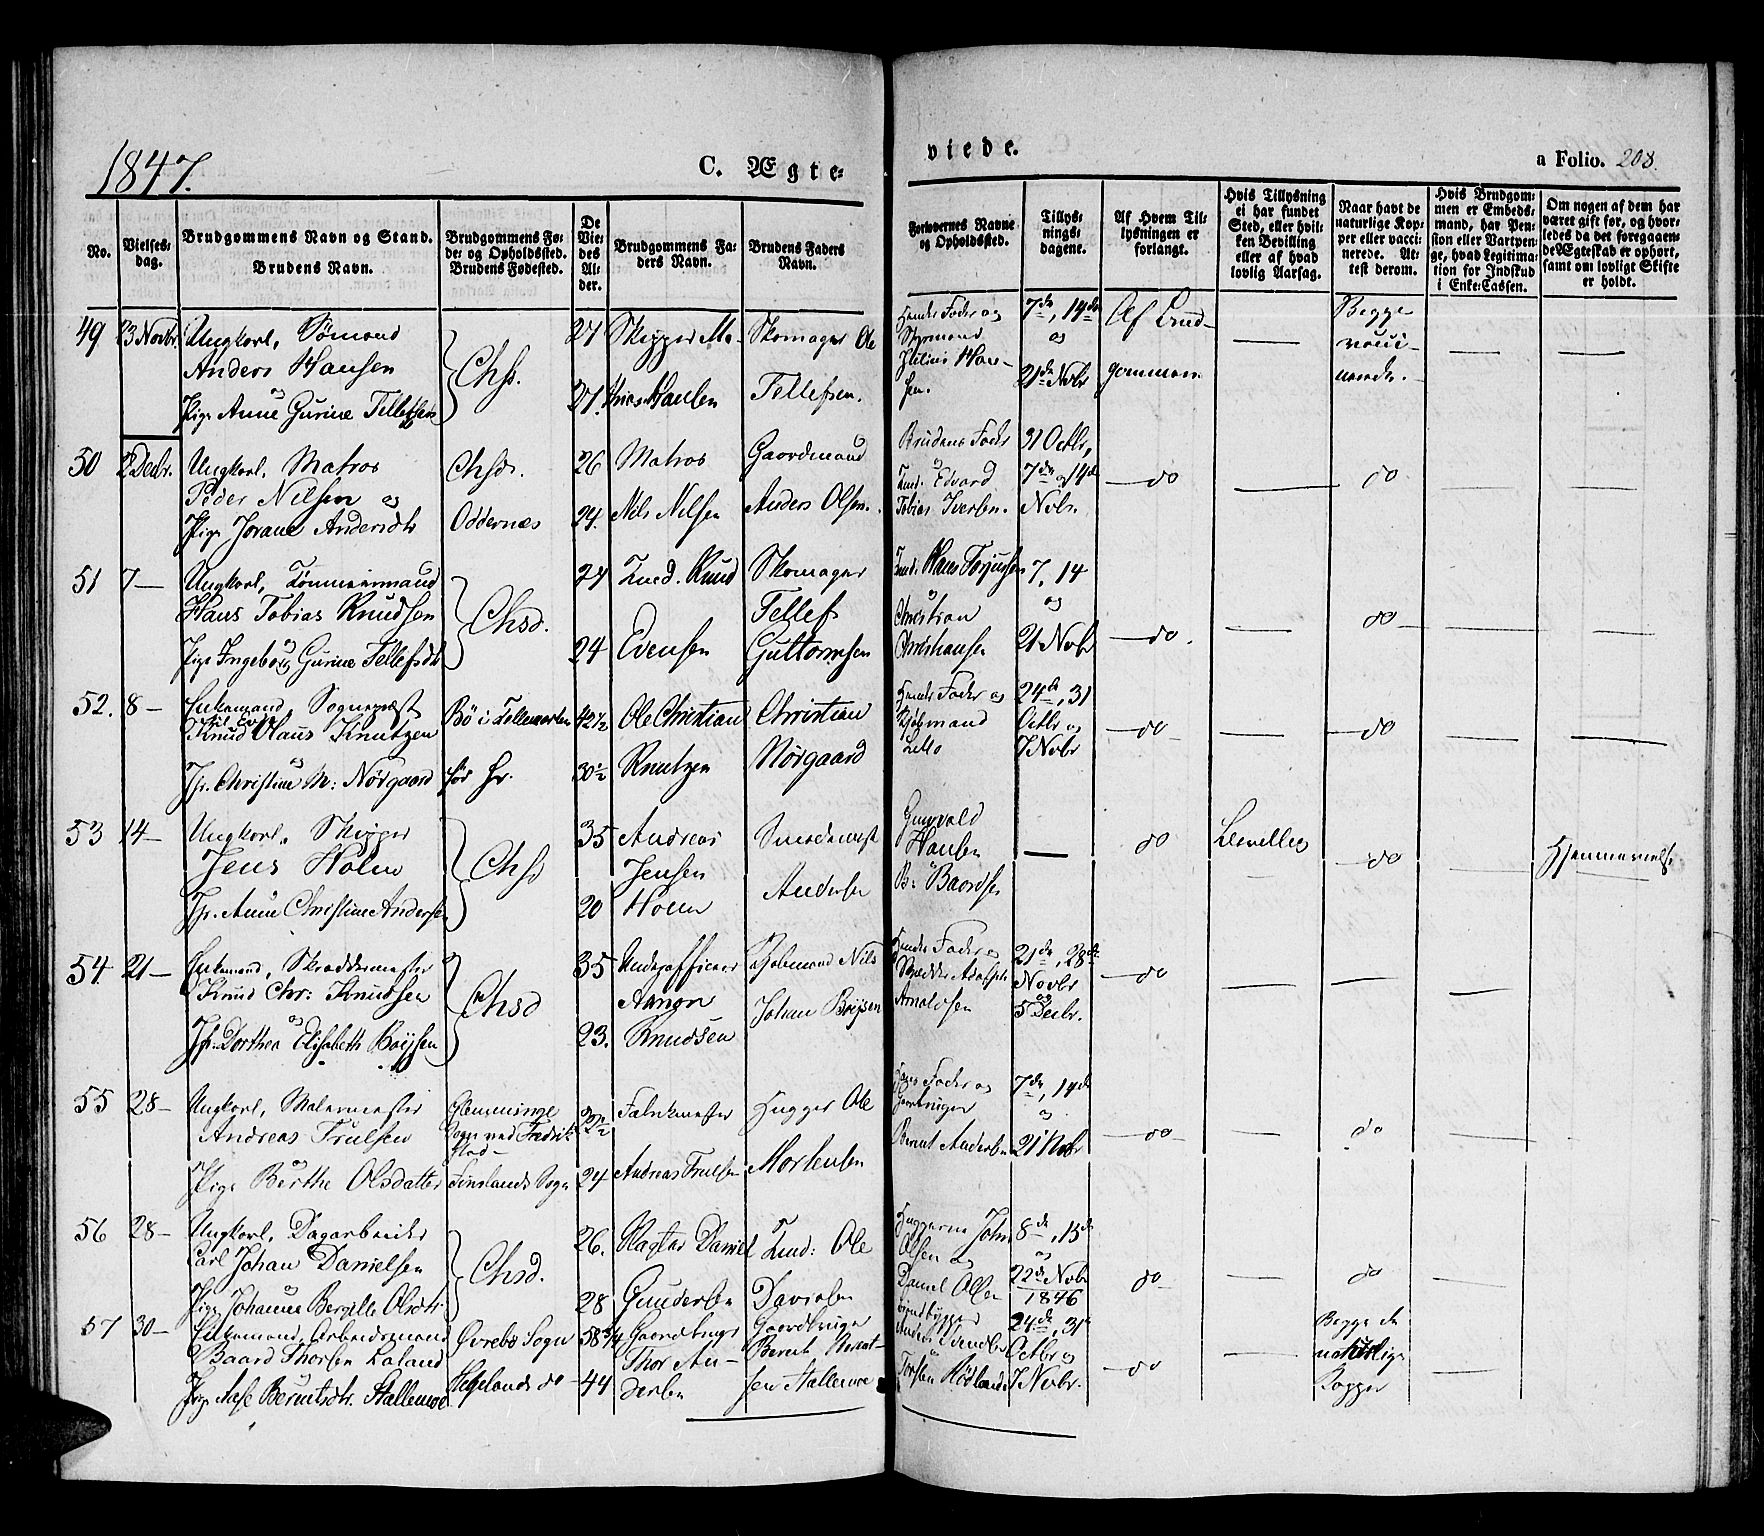 1847.
C. Ægte-
viede.
a Folio. 208.
No.
Vielses-
dag.
Brudgommens Navn og Stand.
Brudens Navn.
Brudgommens Fø-
de- og Opholdssted.
Brudens Fødested.
De
Vie-
des
Al-
der.
Brudgommens Fa-
ders Navn.
Brudens Faders
Navn.
Forlovernes Navne
og Opholdssted.
Tillys-
nings-
dagene.
Af Hvem Til-
lysningen er
forlangt.
Hvis Tillysning
ei har fundet
Sted, eller hvil-
ken Bevilling
eller af hvad
lovlig Aarsag.
Naar havt de
naturlige Kop-
per eller vacci-
nerede. At-
test derom.
Hvis Brudgom-
men er Embeds-
mand, har Pen-
sion eller Vartpen-
ge, hvad Legitima-
tion for Indskud
i Enke-Cassen.
Om nogen af dem har
været gift før, og hvor-
ledes da det foregaaen-
de Ægteskab er ophørt,
samt om lovligt Skifte
er holdt.
49 23 Novbr. Ungkarl, Sømand
Anders Hansen
og
Pige Anne Gurine Tellefsen
Chsd.
27
27.
Skipper
Hansen
Skomager Ole
Tellefsen.
Hendes Fader og
Styrmand
Han-
sen.
7de, 14de
og
21de Novbr
Af Brud-
gommen
Begge
vacci-
nerede.
50 2 Decbr. Ungkarl, Matros
Peder Nilsen og
Pige Jorane Andersdtr
Chsd.
Oddernæs
26
24.
Matros
Nils Nilsen
Gaardmand
Anders Olsen.
Brudens Fader
og
Edvard
Tobias Iversen.
31 Octbr,
7de og 14de
Novbr.
do
do
51 7 Ungkarl, Tømmermand
Hans Tobias Knudsen
og
Pige Ingeborg Gurine Tellefsdtr
Chsd.
24
24
Knud
Evensen
Skomager
Tellef
Guttormsen
Hans Torjussen
og
Christian
Christiansen
7, 14
og
21 Novbr
do.
do
52. 8 Enkemand, Sognepræst
til Evje
Knud Olaus Knutzen
og
Jfr. Christine M: Nørgaard
Bø i Tellemarken
42½
30½
Ole Christian
Knutzen
Christian
Nørgaard
Hendes Fader og
Kjøbmand
24de, 31
Octbr og
7 Novbr
do
do
53 14 Ungkarl, Skipper
Jens Holm
Jfr. Anne Christine Andersen
Chsd
35
20
Andreas
Jensen
Holm
Smedemest
Andersen
Gunvald
Hansen
og
B: Baardsen
do
Bevilling
do
Hjemmevielse
54. 21 Enkemand, Skreddermester
Knud Chr: Knudsen
og
Jfr. Dorthea Elisabeth Boysen
Chsd
35
23.
Underofficer
Aanon
Knudsen
Kjøbmand Nils
Johan Boysen
Hendes Fader og
Skredder
Arnoldsen
21de, 28de
Novbr
og
5 Decbr.
do
55 28 Ungkarl, Malermester
Andreas Trulsen
og
Pige Berthe Olsdatter
Glemminge
Sogn ved Fredrik-
stad
Finslands Sogn
24
Andreas Trulsen
Hugger Ole
Mortensen
Fader og
Gaardbruger
Bernt Andersen
7de, 14de
og
21 Novbr
do
do
56 28 Ungkarl, Dagarbeider
Carl Johan Danielsen
og
Pige Johanne Bergitte Olsdtr
Chsd.
26.
28
Slagter Daniel
Gundersen
Ole
Davidsen
Huggerne John
Olsen &
Daniel Olsen
8de, 15de
og
22de Novbr
1846
do
do
57 30 Enkemand, Arbeidsmand
Baard Thorsen Laland
Pige Aase Berntsdtr. Stallemoe
Øvrebø Sogn
Hegelands do
58¾
44
Gaardbrugr
Thor An-
dersen
Gaardbruger
Bernt Bernt-
sen Stallemoe
24de, 31
Octbr og
7 Novbr.
do
Begge de
naturlige
Kopper